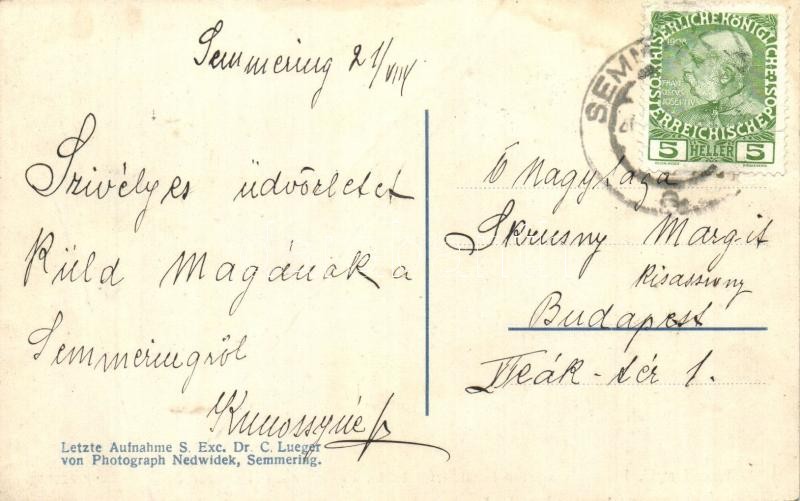 Semmering 21/VIII
Szivélyes üdvözletet
Küld Magának a
Semmeringről
Kunossyné
Letzte Aufnahme S. Exc. Dr. C. Lueger
von Photograph Nedwidek, Semmering.
KAISERLICHE KÖNIGLICHE
ÖSTERREICHISCHE POST
1908
5 HELLER 5
SEMM
Ő Nagysága
Skrusny Margit
kisasszony
Budapest
Deák-tér 1.